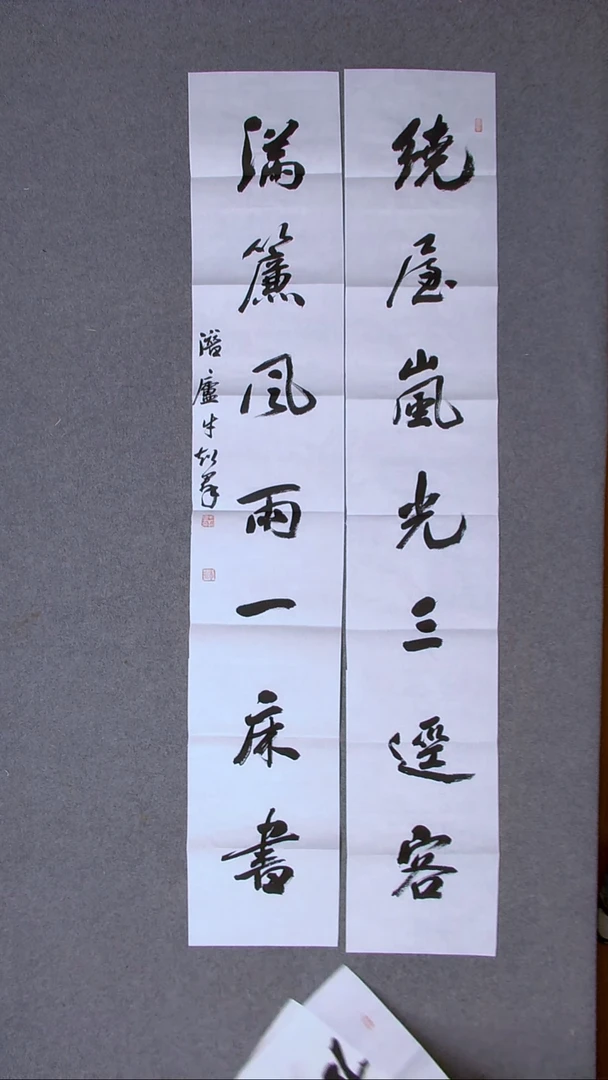 繞屋嵐光三逕客
滿簾風雨一床書
潛廬牛